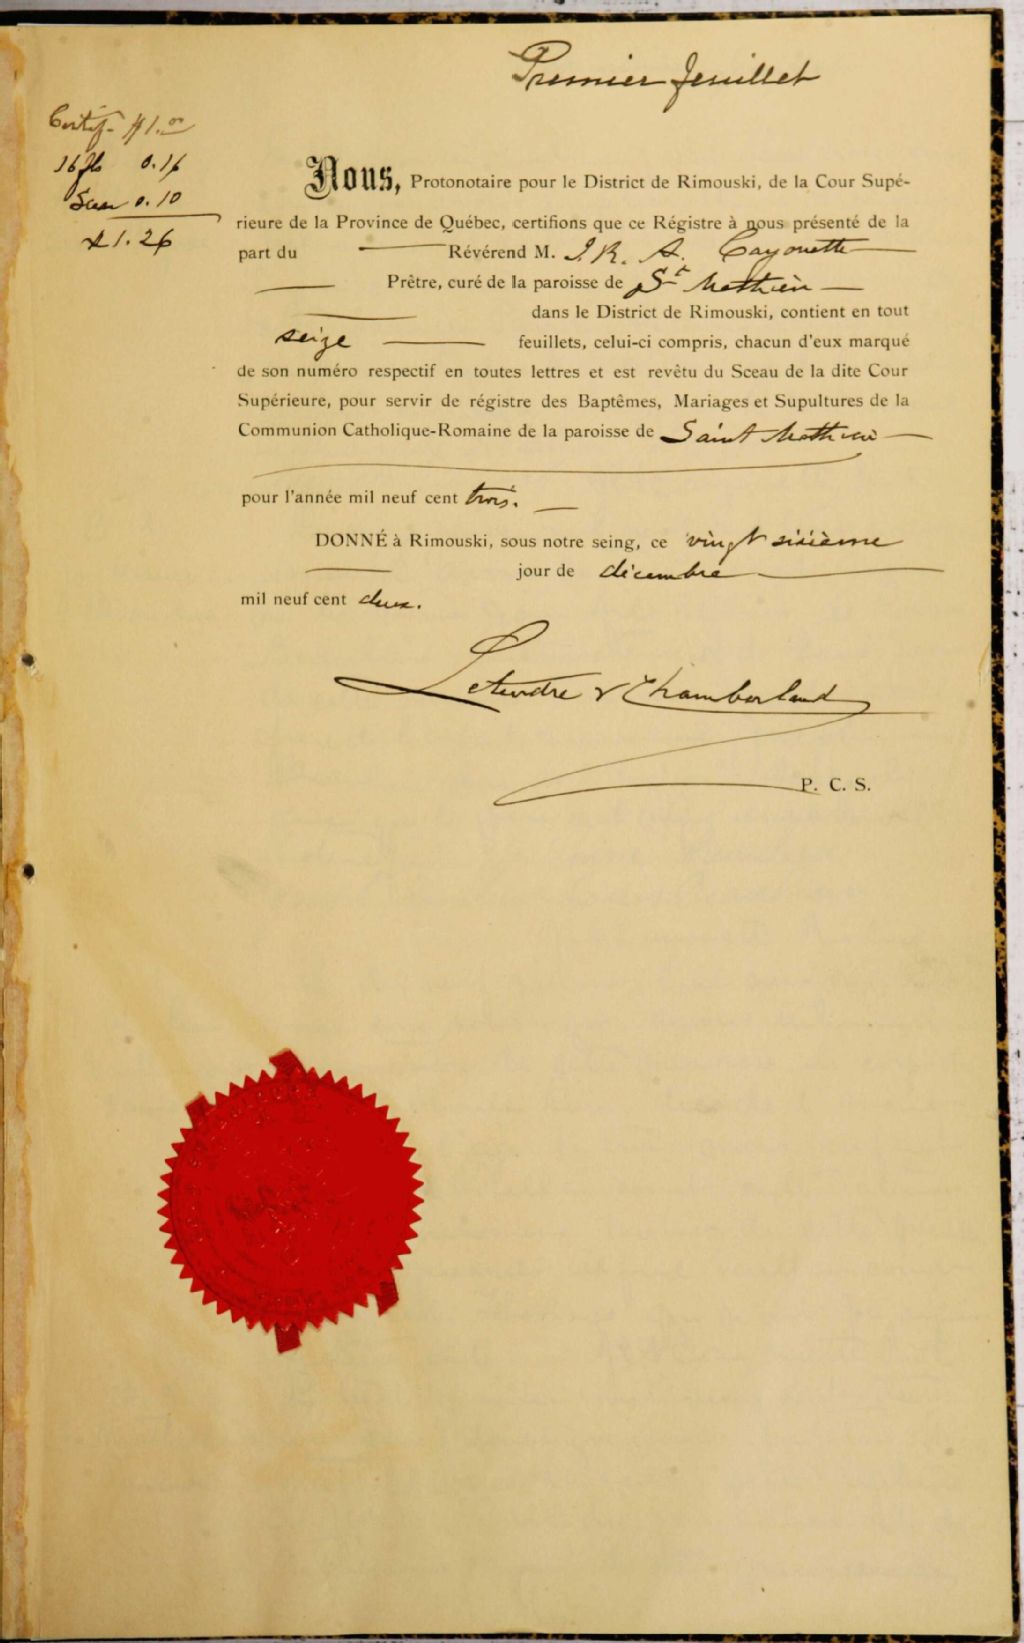 Premier feuillet
Certif. $1.00
16 fts 0.16
Sceau 0.10
$1.26
Nous, Protonotaire pour le District de Rimouski, de la Cour Supé-
rieure de la Province de Québec, certifions que ce Régistre à nous présenté de la
part du Révérend M. J. R. A. Cayouette
Prêtre, curé de la paroisse de St Mathieu
dans le District de Rimouski, contient en tout
seize feuillets, celui-ci compris, chacun d'eux marqué
de son numéro respectif en toutes lettres et est revêtu du Sceau de la dite Cour
Supérieure, pour servir de régistre des Baptêmes, Mariages et Supultures de la
Communion Catholique-Romaine de la paroisse de Saint Mathieu
pour l'année mil neuf cent trois.
DONNÉ à Rimouski, sous notre seing, ce vingt sixième
jour de décembre
mil neuf cent deux.
Letendre & Chamberland
P. C. S.